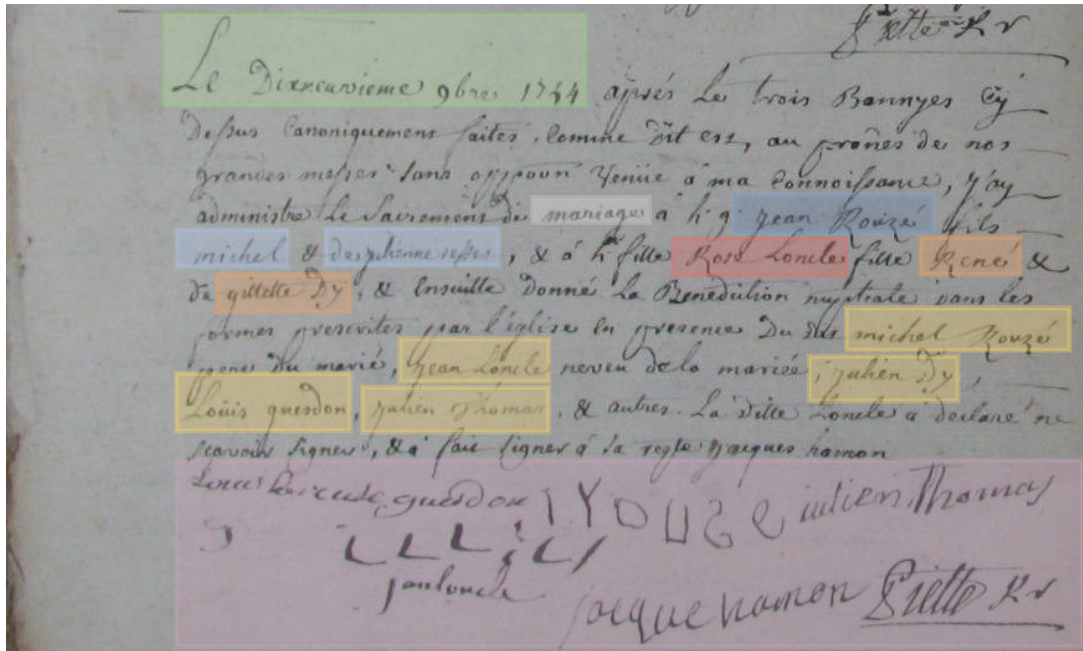 Piette Rr
Le Dixneuvieme 9bre 1744 aprés Le trois Bannyes Cÿ
Dessus Canoniquement faites, Comme Dit est, au prônes de nos
grandes messes sans oppõon Venüe à ma Connoissance, J'ay
administré Le Sacrement de mariage à h. g. Jean Rouzé fils
michel & de julienne , & à h. fille Rose Loncle fille René &
de gillette Dÿ, & Ensuitte donné La Benediction nuptiale dans les
formes prescrittes par l'eglise En presence Du dit michel Rouzé
pere du marié, Jean Loncle neveu de la mariée, Julien Dÿ,
Loüis guesdon, Julien Thomas, & autres. La ditte Loncle a declaré ne
scavoir signer, & a fait signer à sa reqte Jacques hamon
Louis guesdon julien Thomas
jan loncle
jacque hamon Piette Rr